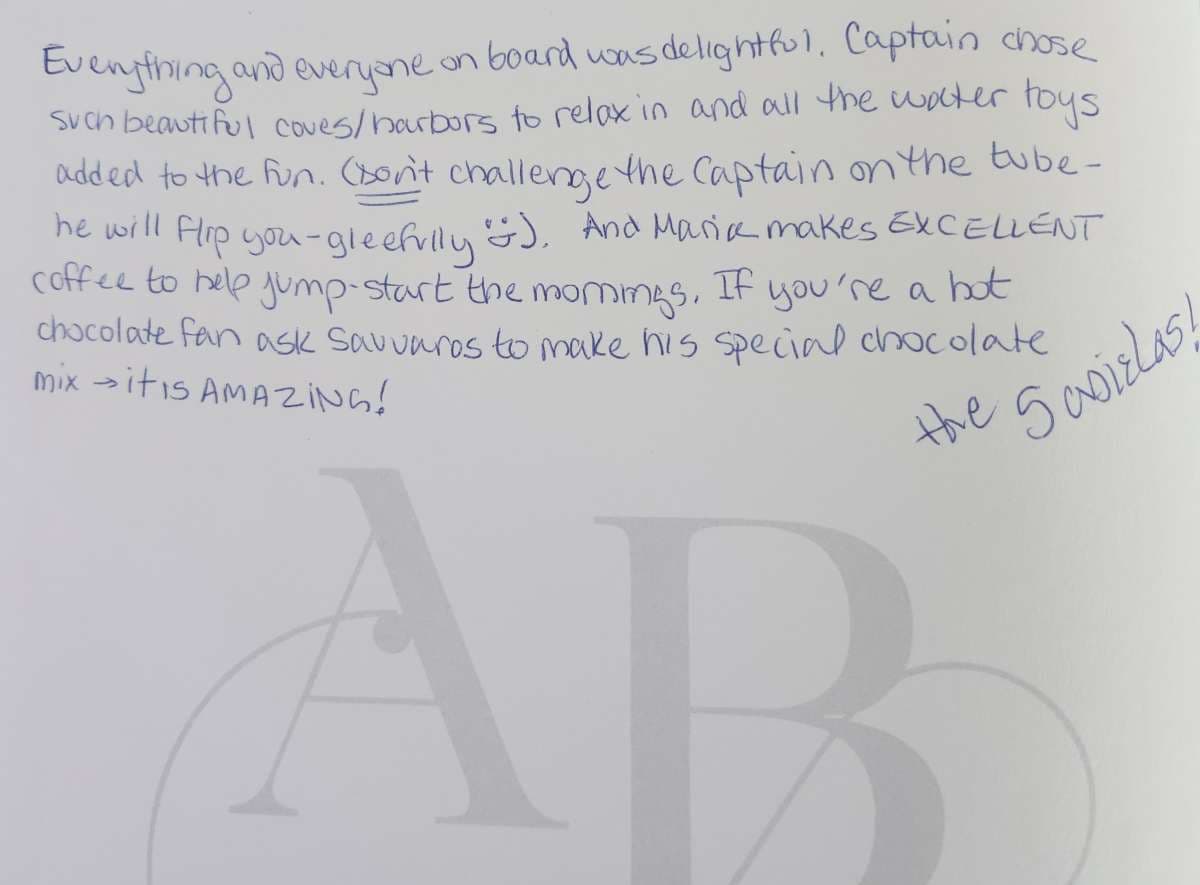 Everything and everyone on board was delightful. Captain chose
such beautiful coves/harbors to relax in and all the water toys
added to the fun. (Don't challenge the Captain on the tube-
he will flip you-gleefully :)). And Maria makes EXCELLENT
coffee to help jump-start the mornings. If you're a hot
chocolate fan ask Savvaros to make his special chocolate
mix → it is AMAZING!
the
AB